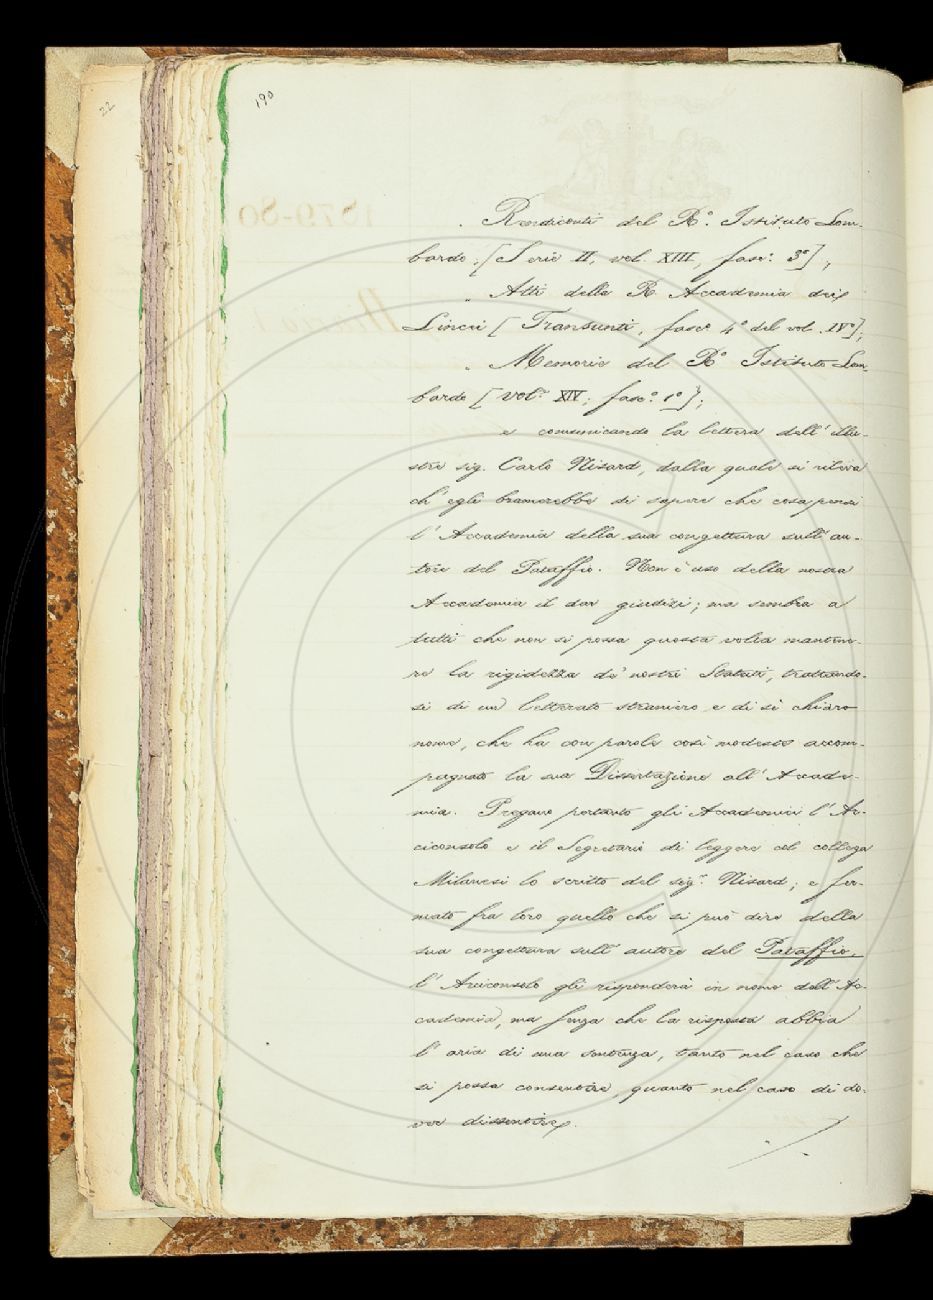 22
190
Rendiconti del R.º Istituto Lom-
bardo; [Serie II, vol. XIII, fasc.º 3º];
Atti della R. Accademia dei
Lincei [Transunti, fasc.º 4º del vol. IVº];
Memorie del R.º Istituto Lom-
bardo [vol.e XIV; fasc.º 1º];
e comunicando la lettera dell'illu-
stre sig. Carlo Nisard, dalla quale si rileva
ch'egli bramerebbe di sapere che cosa pensi
l'Accademia della sua congettura sull'au-
tore del Pataffio. Non è uso della nostra
Accademia il dar giudizi; ma sembra a
tutti che non si possa questa volta mantene-
re la rigidezza de' nostri Statuti, trattando-
si di un letterato straniero e di sì chiaro
nome, che ha con parole così modeste accom-
pagnato la sua Dissertazione all'Accade-
mia. Pregano pertanto gli Accademici l'Ar-
ciconsolo e il Segretario di leggere col collega
Milanesi lo scritto del sig.r Nisard; e fer-
mato fra loro quello che si può dire della
sua congettura sull'autore del Pataffio,
l'Arciconsolo gli risponderà in nome dell'Ac-
cademia, ma senza che la risposta abbia
l'aria di una sentenza, tanto nel caso che
si possa consentire, quanto nel caso di do-
ver dissentire.